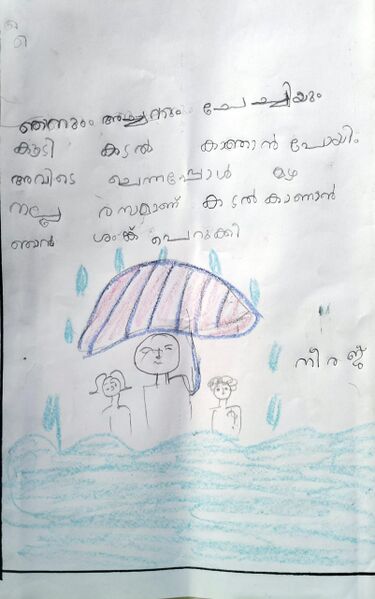 ഞനും അച്ചനും ചേച്ചിയും
കൂടി കടൽ കാത്താൻ പോയി
അവിടെ ചെന്നപ്പോൾ മഴ
നല്ല രസമാണ് കടൽ കാണാൻ
ഞാൻ ശംങ്ക് പെറുക്കി
നീരജ്